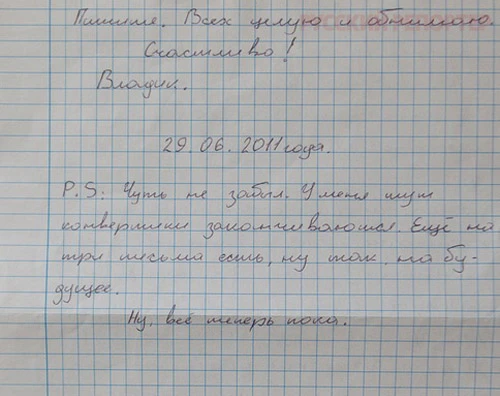 Пишите. Всех целую и обнимаю.
Счастливо!
Владик.
29.06.2011 года.
P.S: Чуть не забыл. У меня тут
конвертики заканчиваются. Ещё на
три письма есть, ну так, на бу-
дущее.
Ну, всё теперь пока.